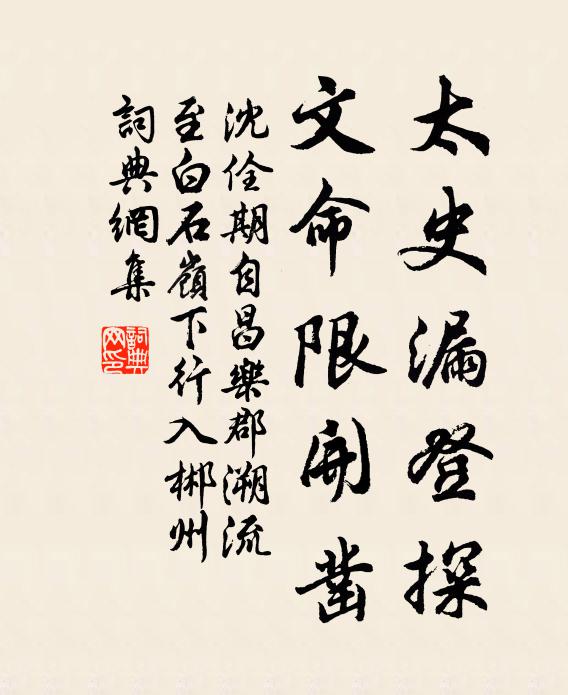 太史漏登探
文命限開鑿
沈佺期自昌樂郡溯流
至白石嶺下行入郴州
詞典網集
詞典
网印